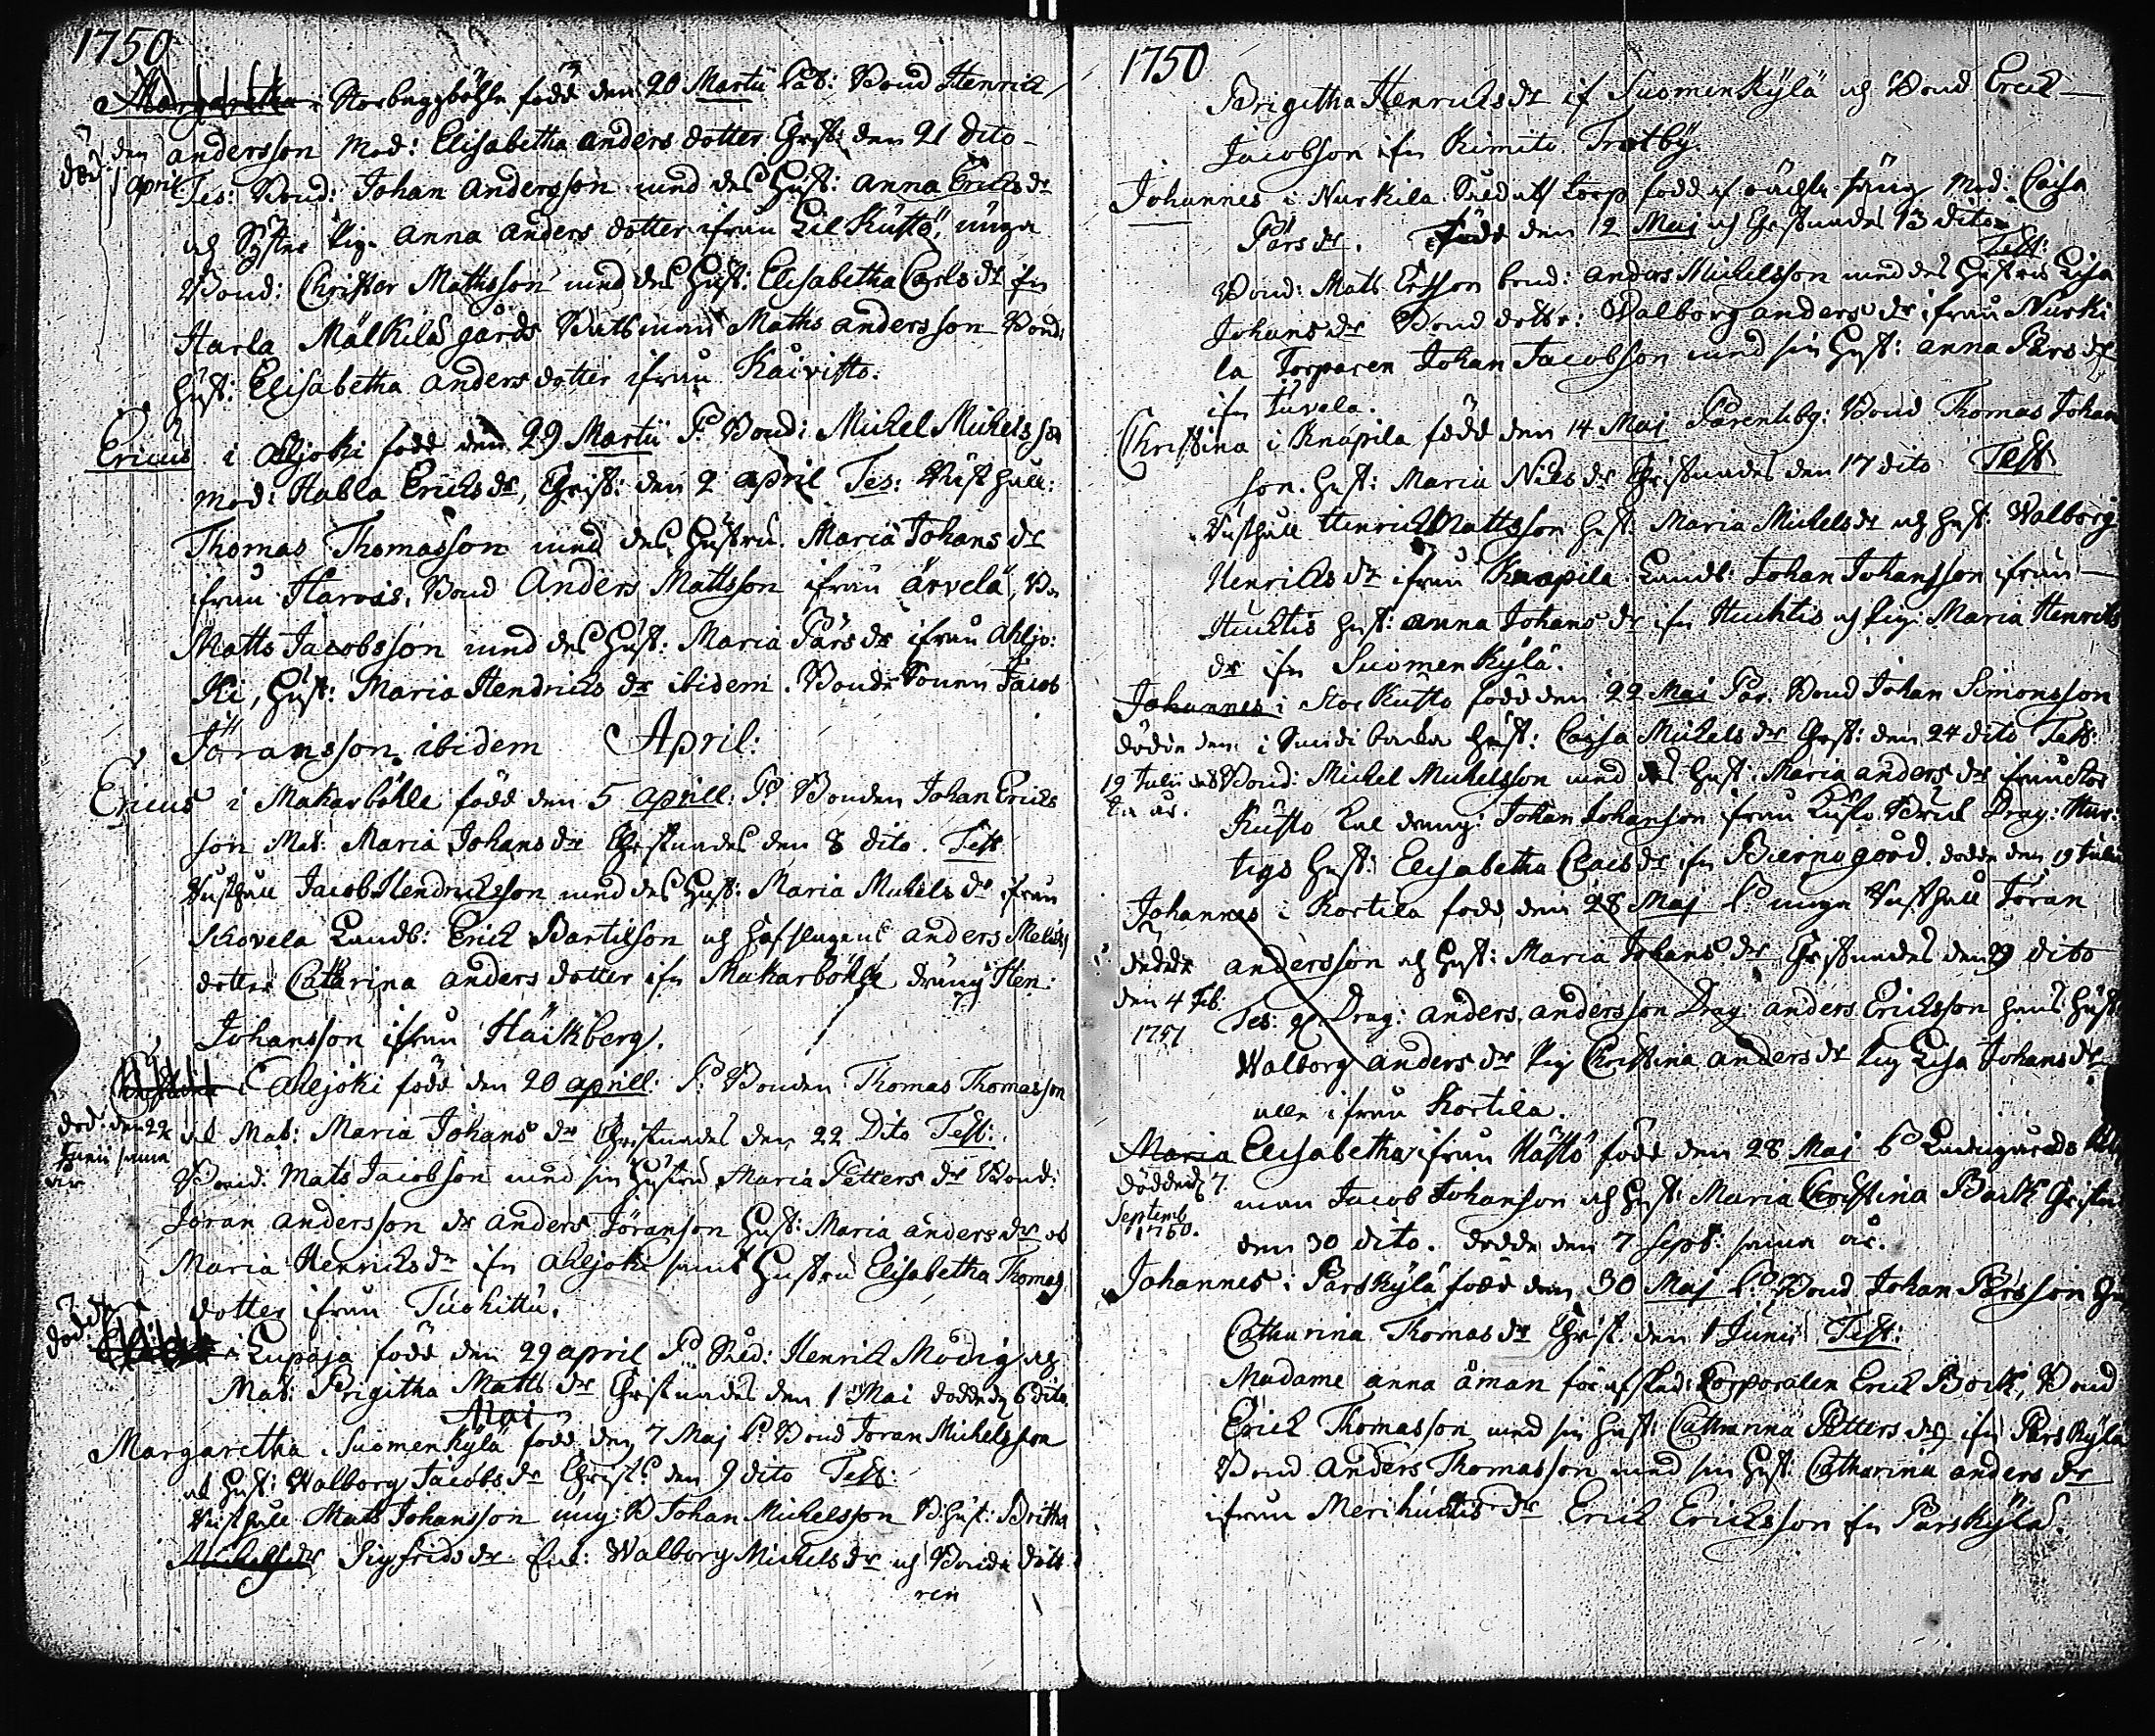 1750
Margaretha i Storbyggböhle född den 20 Martii Pat: Bond Henrich
andersson Mod: Elisabetha anders dotter Christ: den 21 dito
död den 1 April
Tes: Bond: Johan andersson med des Hust: anna Erichs dr
och Syster Pig. anna anders dotter ifrån Lil Kustö, unga
Bond: Christer Mathsson med des Hust: Elisabetha Carls dr fr
Harla Mälkilä gårds Maths andersson Bond:
Hust: Elisabetha anders dotter ifrån Kaivisto.
Ericus i Ahljoki född den 29 Martii P. Bond: Michel Michelsson
Mod: Habla Erichs dr, Christ: den 2 april Tes: Rusthåll:
Thomas Thomasson med des Hustru. Maria Johans dr
ifrån Harvis, Bond Anders Mattsson ifrån ärvelä, Bo
Matts Jacobsson med des Hust: Maria Pärs dr ifrån Ahljo:
ki, Hust: Maria Hendrichs dr ibidem. Bonde Sonen Jacob
Jöransson ibidem April:
Ericus i Makarböhle född den 5 aprill: P. Bonden Johan Erichs
son Mat: Maria Johans dr Christnades den 8 dito. Test
Rusthåll Jacob Hendrichsson med des Hust: Maria Michels dr ifrån
Skovela Landb: Erich Bertilson och Hofslagens anders
dotter Catarina anders dotter ifr Makarböhle dräng Hen:
Johansson ifrån Häikberg.
i Ahljoki född den 20 aprill: P. Bonden Thomas Thomasson
död: den 22 Junii sama år
och Mat: Maria Johans dr Christnades den 22 Dito Test:
Bond: Mats Jacobson med sin Hustru Maria Petters dr Bond:
Jöran andersson dr anders Jöranson Hust: Maria anders dr och
Maria Henrichs dr ifr Ahljoki samt Hustru Elisabetha Thomas
dotter ifrån Tuohittu.
död
i Lupaja född den 29 april P. Sold: Henrich Modig och
Mat: Brigitha Matts dr Christnades den 1 Mai dödde d 6 dito
Mai
Margaretha i Suomenkylä född den 7 Maj P. Bond Jöran Michelsson
och Hust: Walborg Jacobs dr Christ. den 9 dito Test:
Rusthåll Mats Johansson ung: B Johan Michelsson B: Hust: Britha
Michels dr Sigfrids dr Walborg Michels dr och Bonde dött
ren
1750
Brigitha Henrichs dr if Suomenkylä och Bond Erich
Jacobson ifr Kimito Trotby.
Johannes i Nurkila Soldats torp född af Mod: Caisa
Pärs dr. född den 12 Maj och Christnades 13 dito
Test:
Bond: Mats Ersson bond: anders Michelsson med des Hustru Lisa
Johans dr Bond dotter: Walborg anders dr ifrån Nurki
la Torparen Johan Jacobson med sin Hust: anna Pärs dr
ifr Tuvela.
Christina i Knapila född den 14 Maj Parentibg: Bond Thomas Johan
son. Hust: Maria Nils dr Christnades den 17 dito Test.
Rusthåll Henrich Mattsson Hust. Maria Michels dr och Hust: Walborg
Henrichs dr ifrån Knapila Landb: Johan Johansson ifrån
Huchtis Hust: anna Johans dr ifr Huchtis och Pig: Maria Henrichs
dr ifr Suomenkylä.
Johannes i Storkusto född den 22 Maj Par. Bond Johan Simonsson
dödde den i Hust: Caisa Michels dr Christ: den 24 dito Test:
19 Julii Bond: Michel Michelsson med des Hust: Maria anders dr ifrån Stor
Kusto dräng: Johan Johanson ifrån Kusto. Drag: Har:
tigs Hust: Elisabetha Claes dr ifr Bierno gård. dödde den 19 Julii
Johannes i Kortila född den 28 Maj P. unga Rusthåll Jöran
dödde den 4 Feb: 1751
andersson och Hust: Maria Johans dr Christnades den 29 dito
Tes: Drag: anders andersson Drag anders Erichsson hans Hust
Walborg anders dr Pig Christina anders dr Pig Lisa Johans dr
alla ifrån Kortila.
Maria Elisabetha ifrån född den 28 Maj P Landzgårds
dödde d 7. Septemb 1750.
man Jacob Johanson och Hust: Maria Christina Bark Christn
den 30 dito. dödde den 7 Sept: sama år.
Johannes i Pärskylä född den 30 Maj P. Bond Johan Pärsson Hu
Catharina Thomas dr Christ. den 1 Junii Test:
Madame anna åman för afsked: Korporalen Erich Bock, Bond
Erich Thomasson med sin Hust: Catharina Petters dr ifr Pärskylä
Bond anders Thomasson med sin Hust: Catharina anders dr
ifrån Merihuchtis dr Erich Erichsson fr Pärskylä.